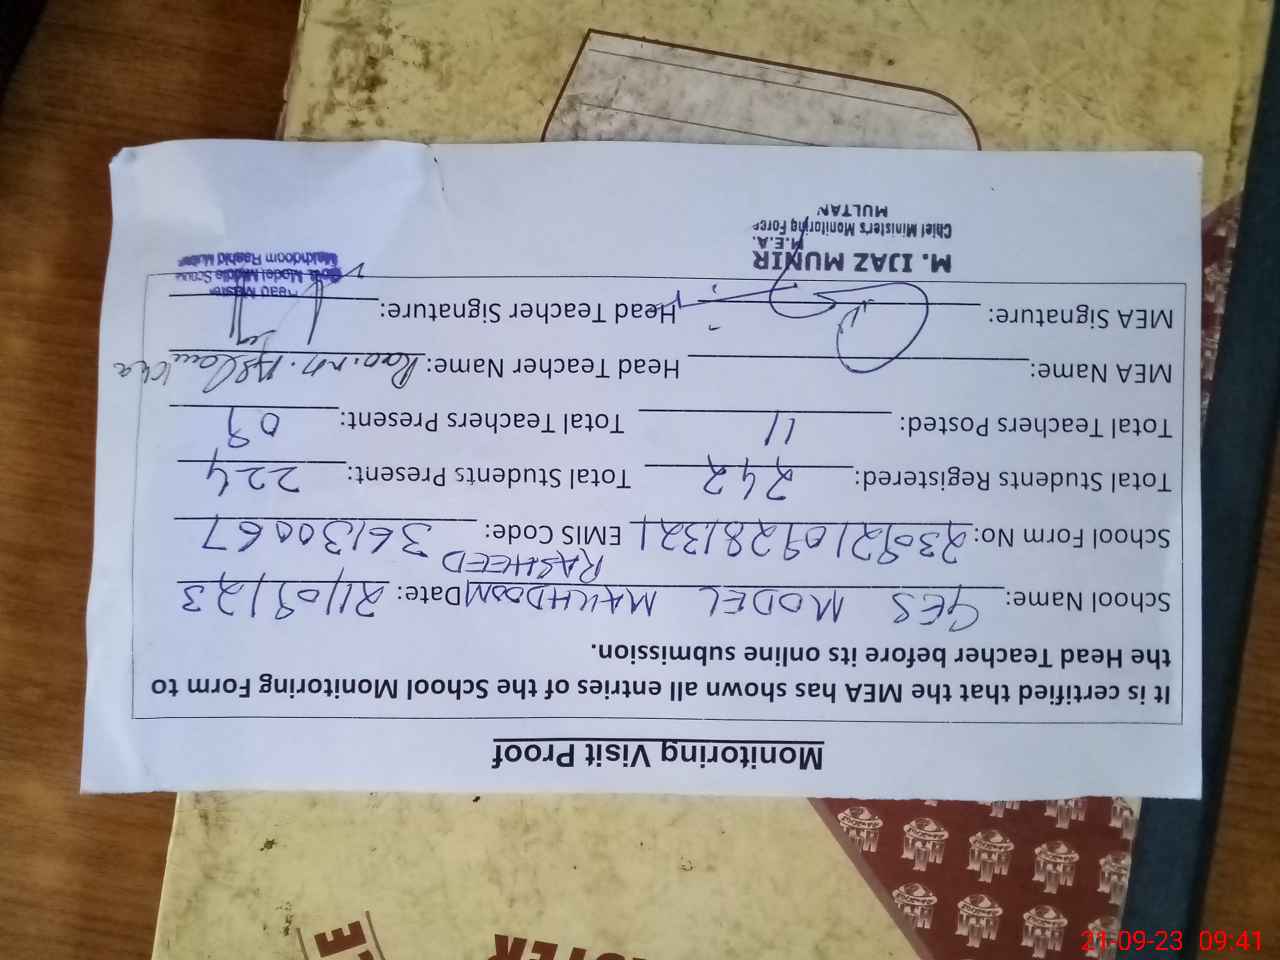 Monitoring Visit Proof
It is certified that the MEA has shown all entries of the School Monitoring Form to
the Head Teacher before its online submission.
School Name: GES MODEL MAKHDOOM RASHEED Date: 21/09/23
School Form No: 23092109281321 EMIS Code: 36130067
Total Students Registered: 242 Total Students Present: 224
Total Teachers Posted: 11 Total Teachers Present: 09
MEA Name: Head Teacher Name: Rao. M. Aslam
MEA Signature: Head Teacher Signature:
M. IJAZ MUNIR
M.E.A.
Chief Minister's Monitoring Force
MULTAN
Head Master
Govt. Model Middle School
Makhdoom Rashid Multan
21-09-23 09:41